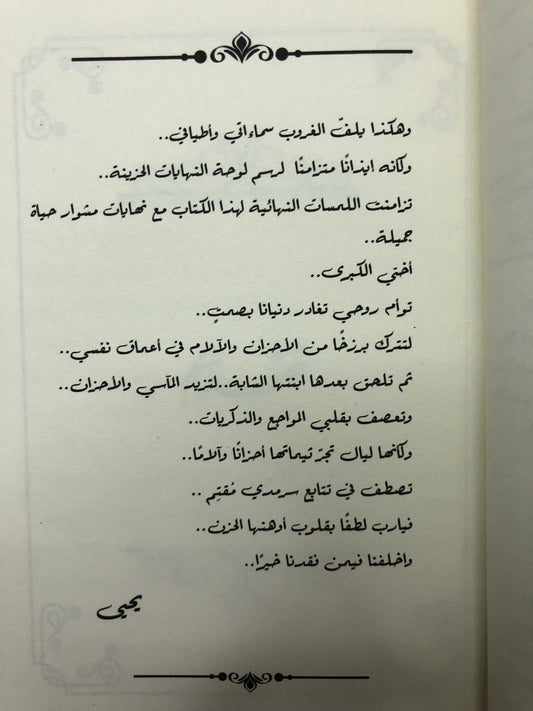 وهكذا يلفّ الغروب سماءاتي وأطيافي..
وكانه ايذانًا متزامنًا لرسم لوحة النهايات الحزينة..
تزامنت اللمسات النهائية لهذا الكتاب مع نهايات مشوار حياة
جميلة..
أختي الكبرى..
توأم روحي تغادر دنيانا بصمتٍ..
لتترك برزخًا من الأحزان والآلام في أعماق نفسي..
ثم تلحق بعدها ابنتها الشابة..لتزيد المآسي والأحزان..
وتعصف بقلبي المواجع والذكريات..
وكأنها ليال تجرّ ثيماتها أحزانًا وآلامًا..
تصطف في تتابع سرمدي مُقتِم ..
فيارب لطفًا بقلوب أوهنها الحزن..
واخلفنا فيمن فقدنا خيرًا..
يحيى